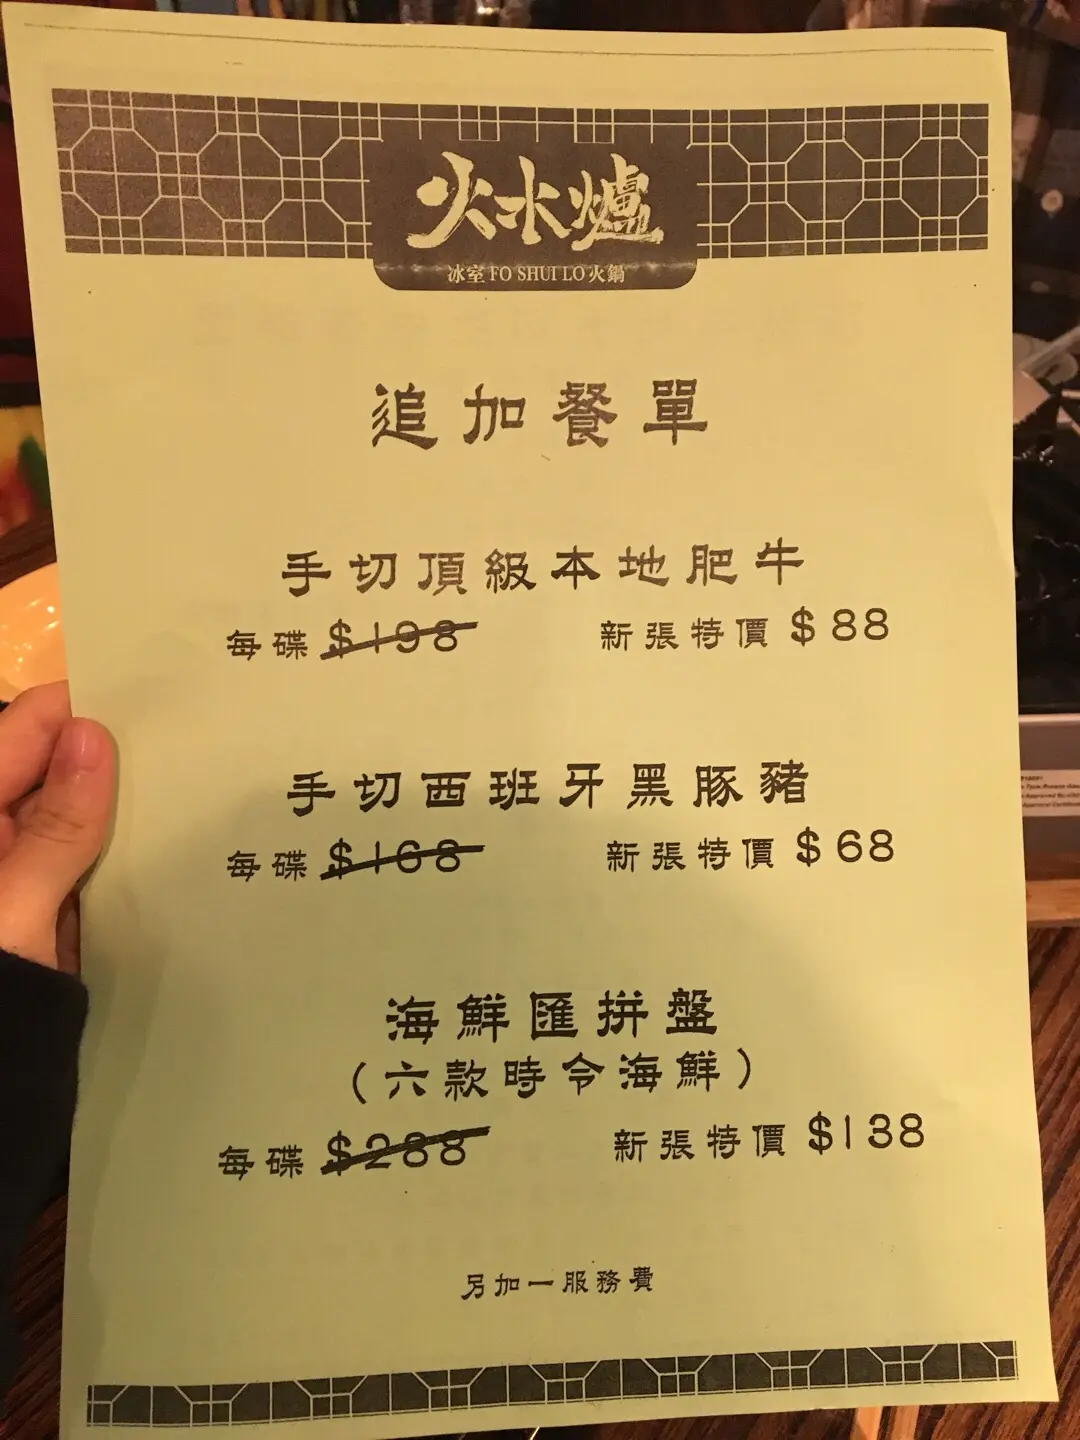 火水爐
冰室 FO SHUI LO 火鍋
追加餐單
手切頂級本地肥牛
每碟 $198 新張特價 $88
手切西班牙黑豚豬
每碟 $168 新張特價 $68
海鮮匯拼盤
(六款時令海鮮)
每碟 $288 新張特價 $138
另加一服務費